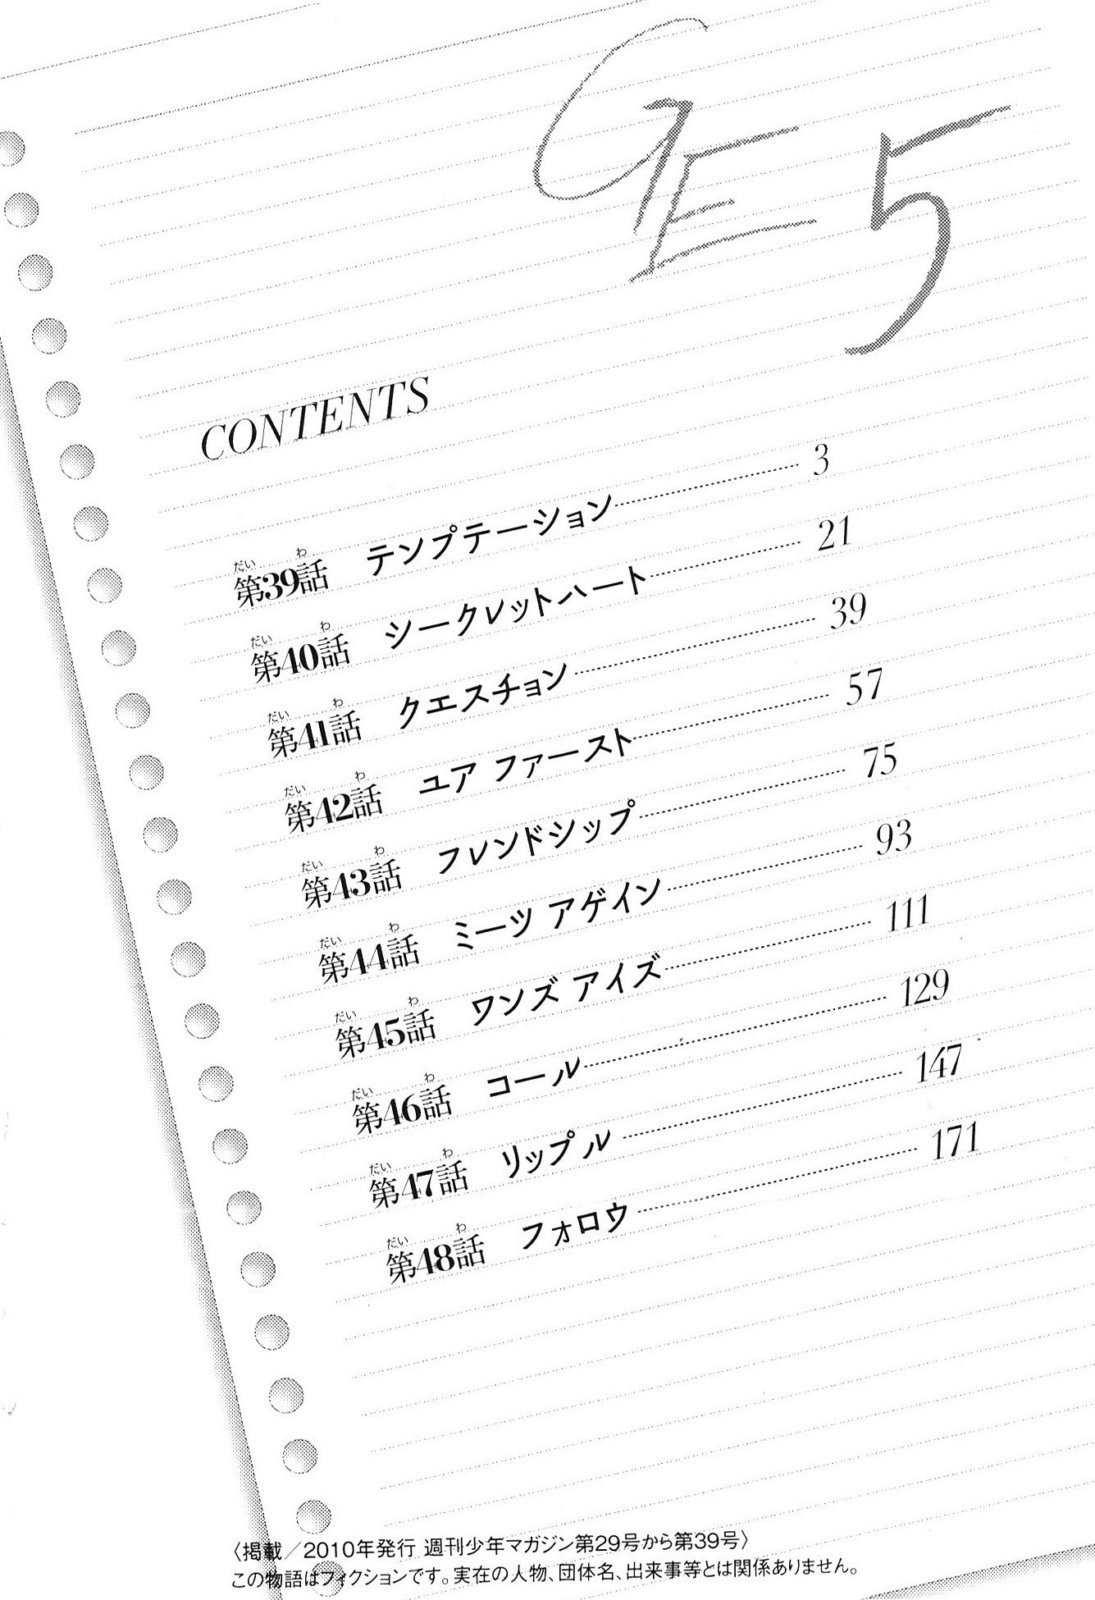 GE 5
CONTENTS
第39話 テンプテーション 3
第40話 シークレットハート 21
第41話 クエスチョン 39
第42話 ユア ファースト 57
第43話 フレンドシップ 75
第44話 ミーツ アゲイン 93
第45話 ワンズ アイズ 111
第46話 コール 129
第47話 リップル 147
第48話 フォロウ 171
〈掲載／2010年発行 週刊少年マガジン第29号から第39号〉
この物語はフィクションです。実在の人物、団体名、出来事等とは関係ありません。